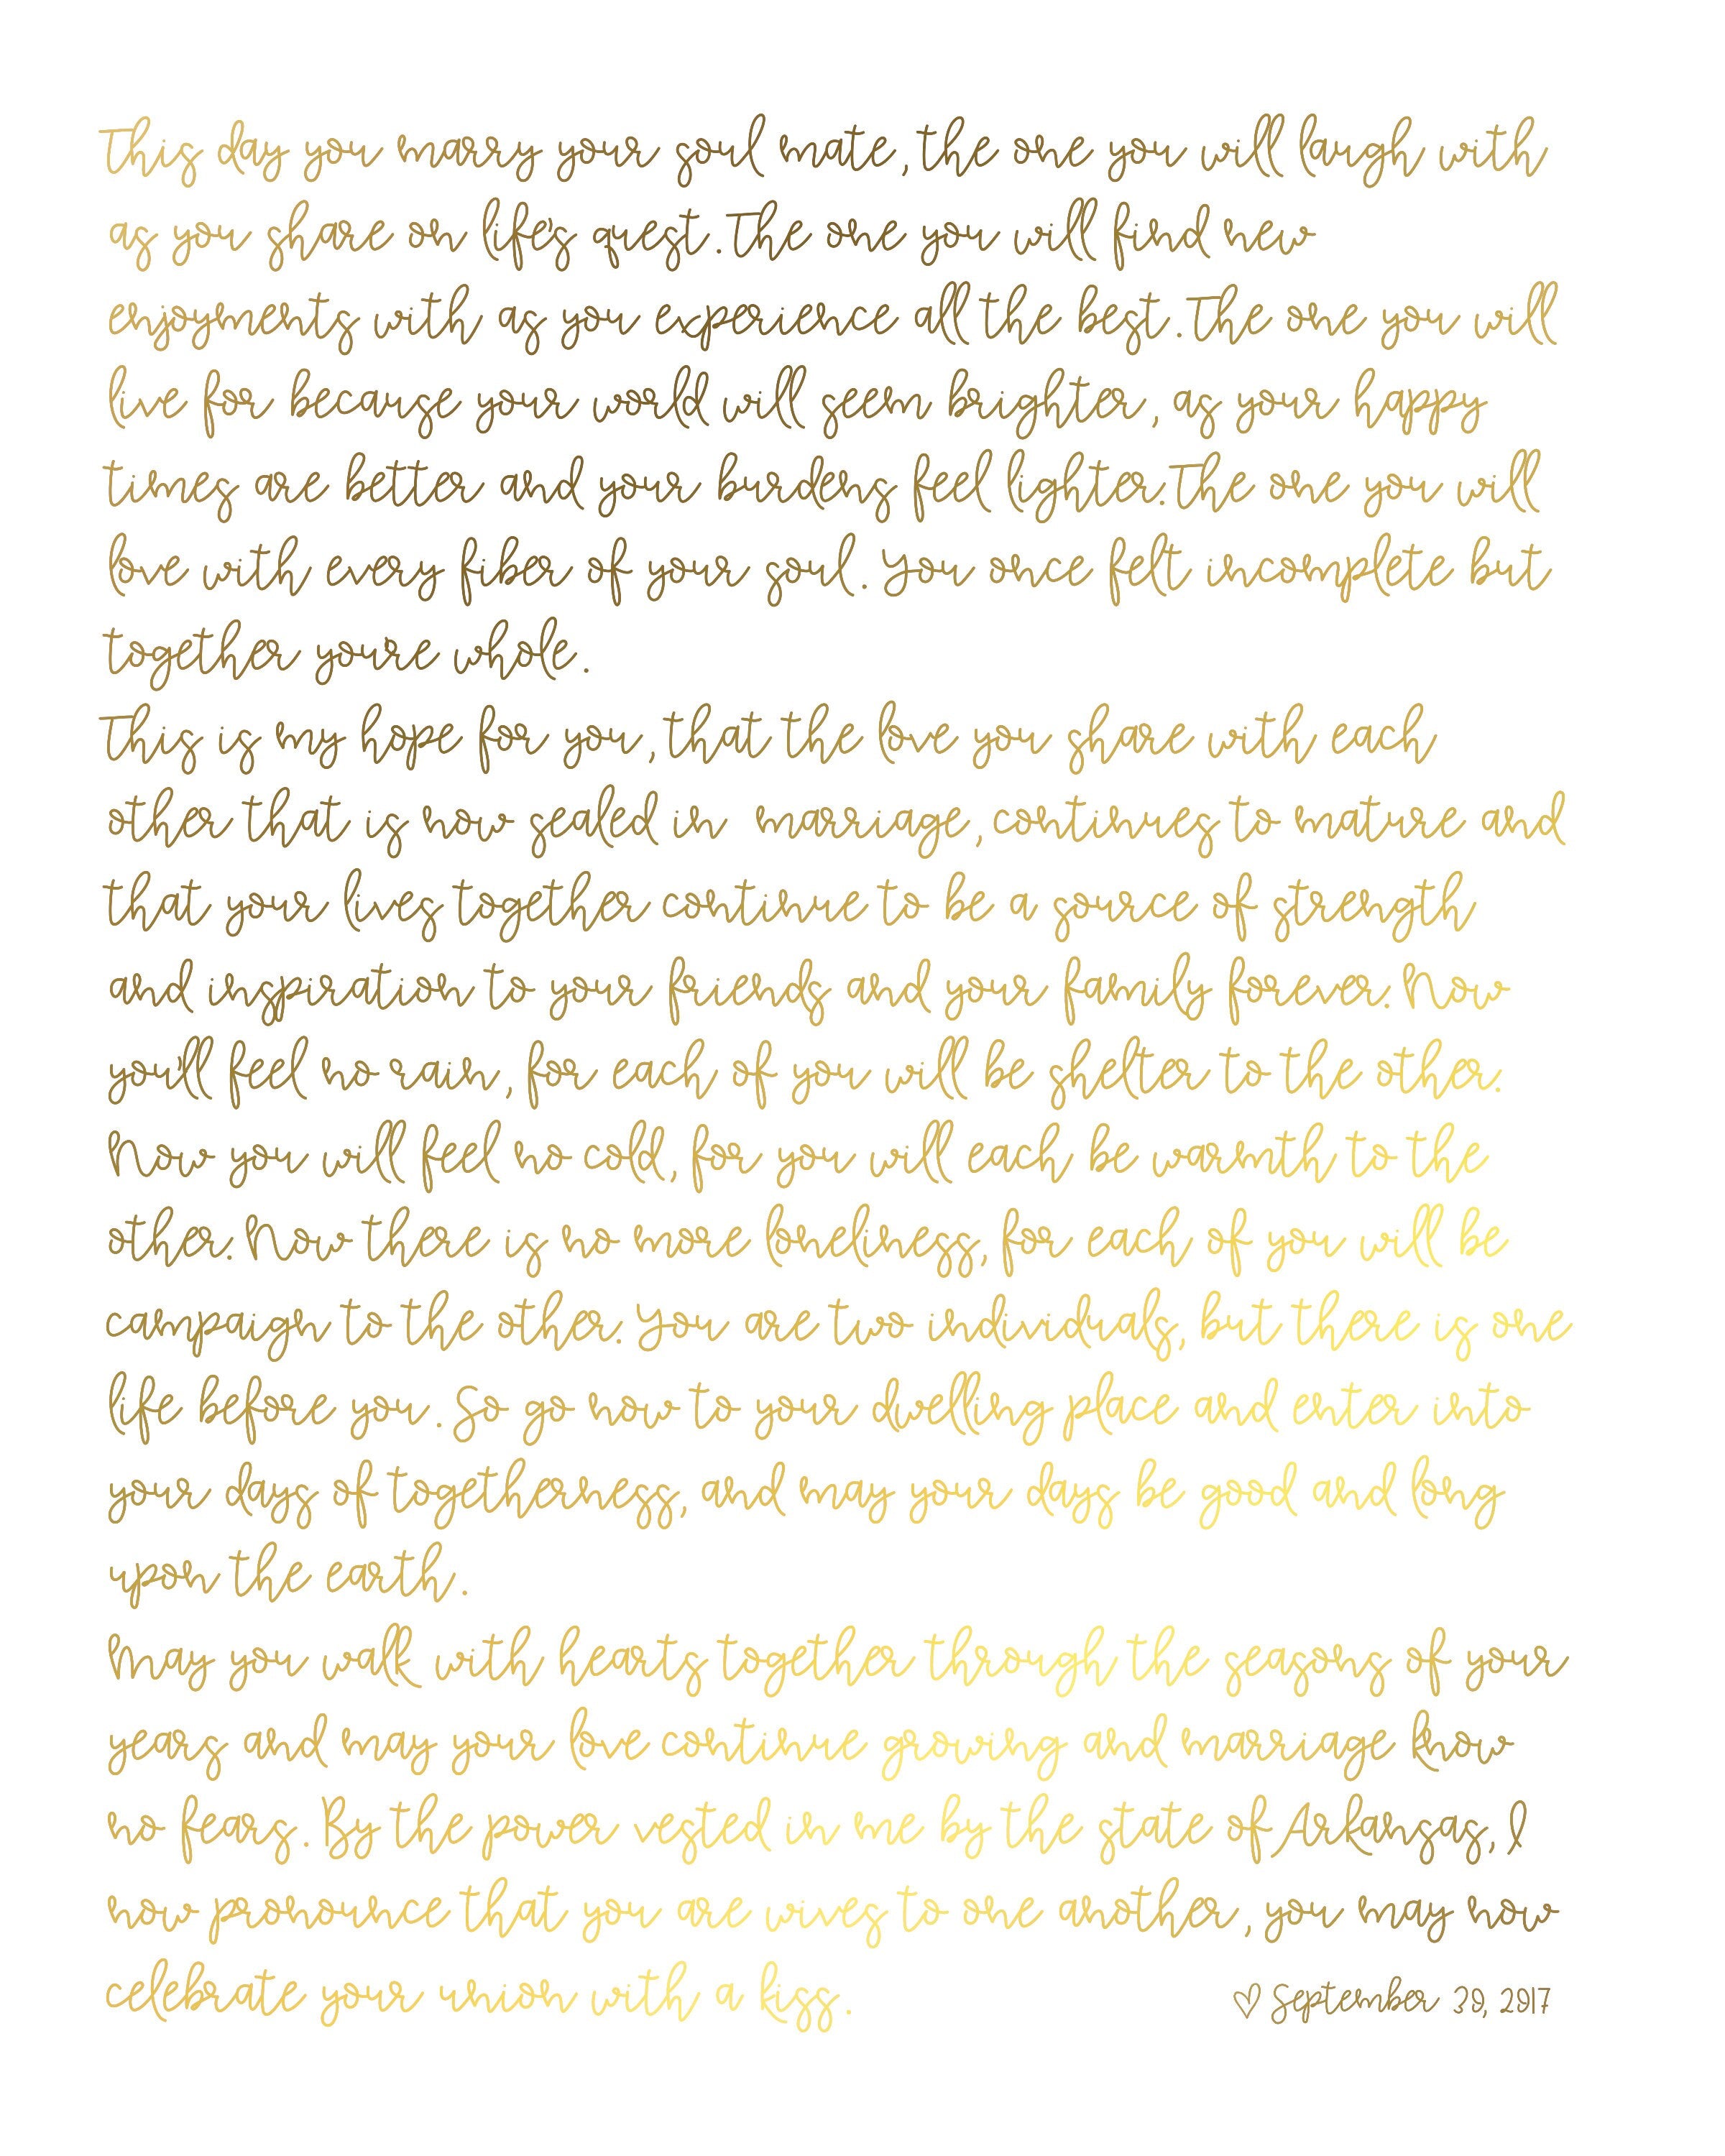 This day you marry your soul mate, the one you will laugh with
as you share on life's quest. The one you will find new
enjoyments with as you experience all the best. The one you will
live for because your world will seem brighter, as your happy
times are better and your burdens feel lighter. The one you will
love with every fiber of your soul. You once felt incomplete but
together you're whole.
This is my hope for you, that the love you share with each
other that is now sealed in marriage, continues to mature and
that your lives together continue to be a source of strength
and inspiration to your friends and your family forever. Now
you'll feel no rain, for each of you will be shelter to the other.
Now you will feel no cold, for you will each be warmth to the
other. Now there is no more loneliness, for each of you will be
campaign to the other. You are two individuals, but there is one
life before you. So go now to your dwelling place and enter into
your days of togetherness, and may your days be good and long
upon the earth.
May you walk with hearts together through the seasons of your
years and may your love continue growing and marriage know
no fears. By the power vested in me by the state of Arkansas, I
now pronounce that you are wives to one another, you may now
celebrate your union with a kiss.
♡ September 30, 2017